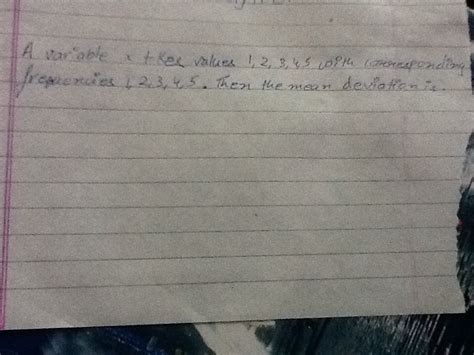 A variable x tkes values 1, 2, 3, 4, 5 with corresponding
frequencies 1, 2, 3, 4, 5. Then the mean deviation is.